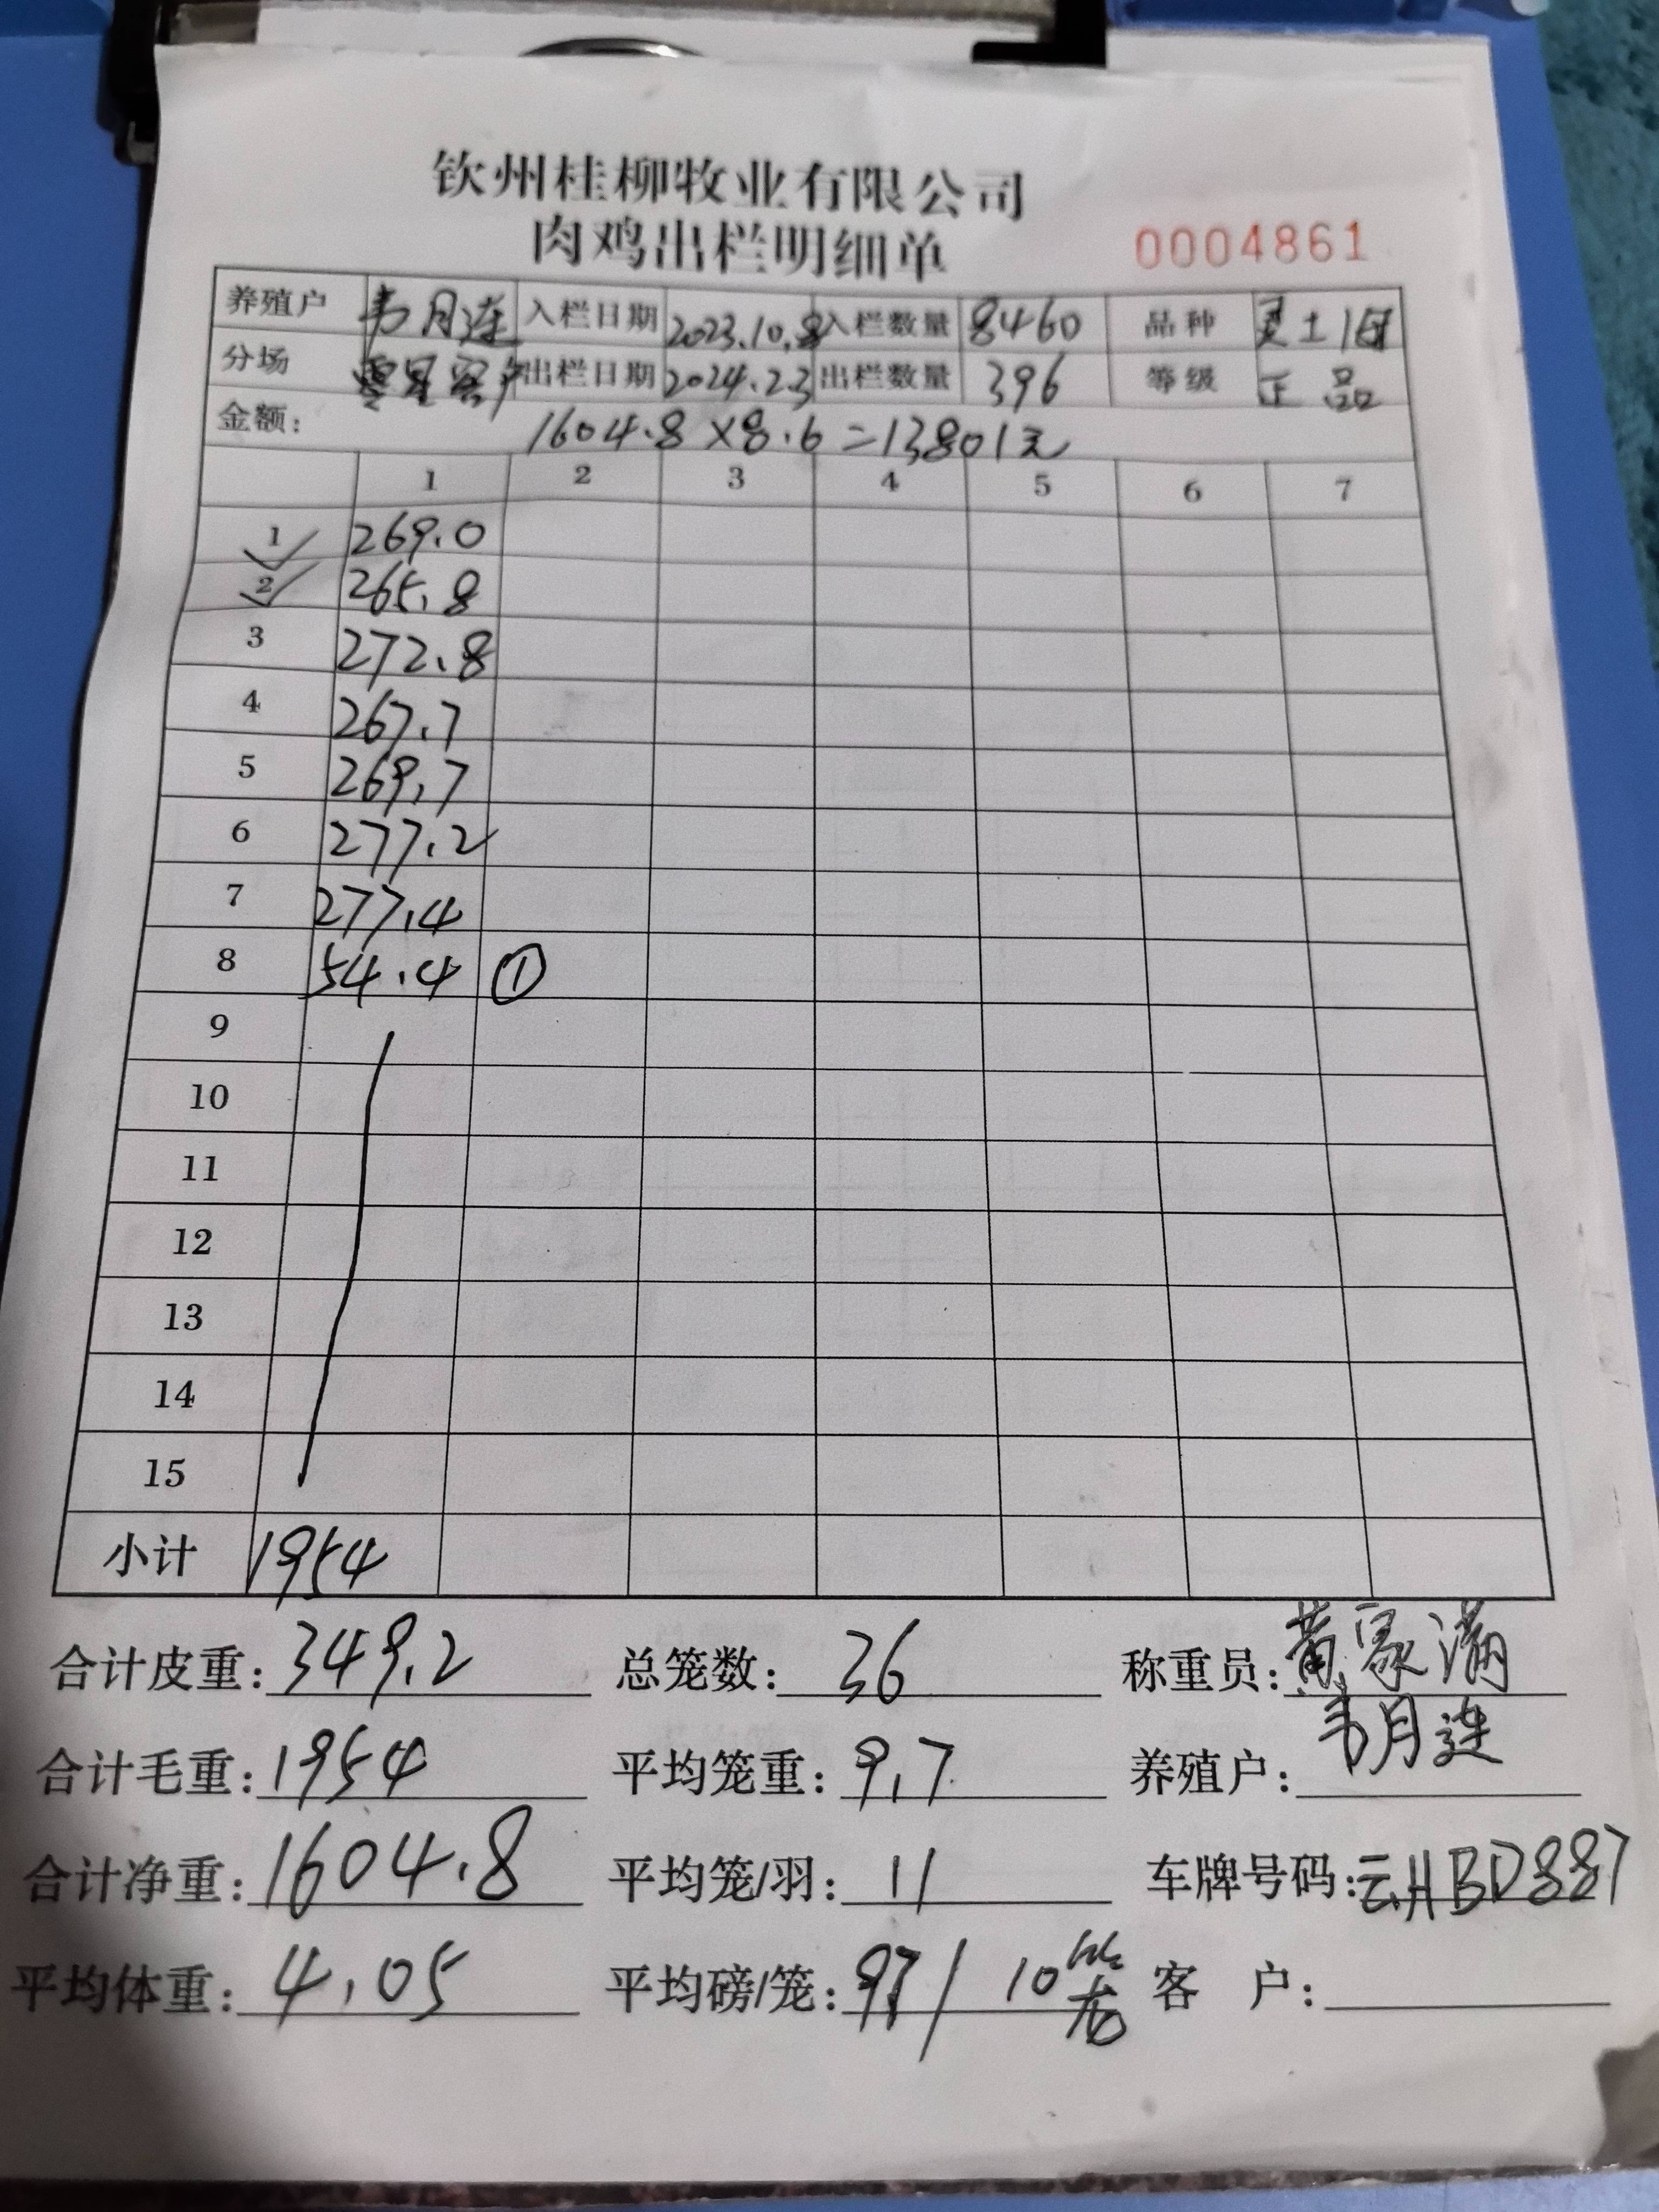 钦州桂柳牧业有限公司
肉鸡出栏明细单 0004861
养殖户 韦月连 入栏日期 2023.10.8 入栏数量 8460 品种 土1
分场 零星客户 出栏日期 2024.2.3 出栏数量 396 等级 正品
金额: 1604.8×8.6=13801元
1 2 3 4 5 6 7
1 269.0
2 265.8
3 272.8
4 267.7
5 269.7
6 277.2
7 277.4
8 54.4 ①
9
10
11
12
13
14
15
小计 1954
合计皮重: 349.2 总笼数: 36 称重员: 黄家满
合计毛重: 1954 平均笼重: 9.7 养殖户: 韦月连
合计净重: 1604.8 平均笼/羽: 11 车牌号码: 云HBD887
平均体重: 4.05 平均磅/笼: 97/10笼 客 户: